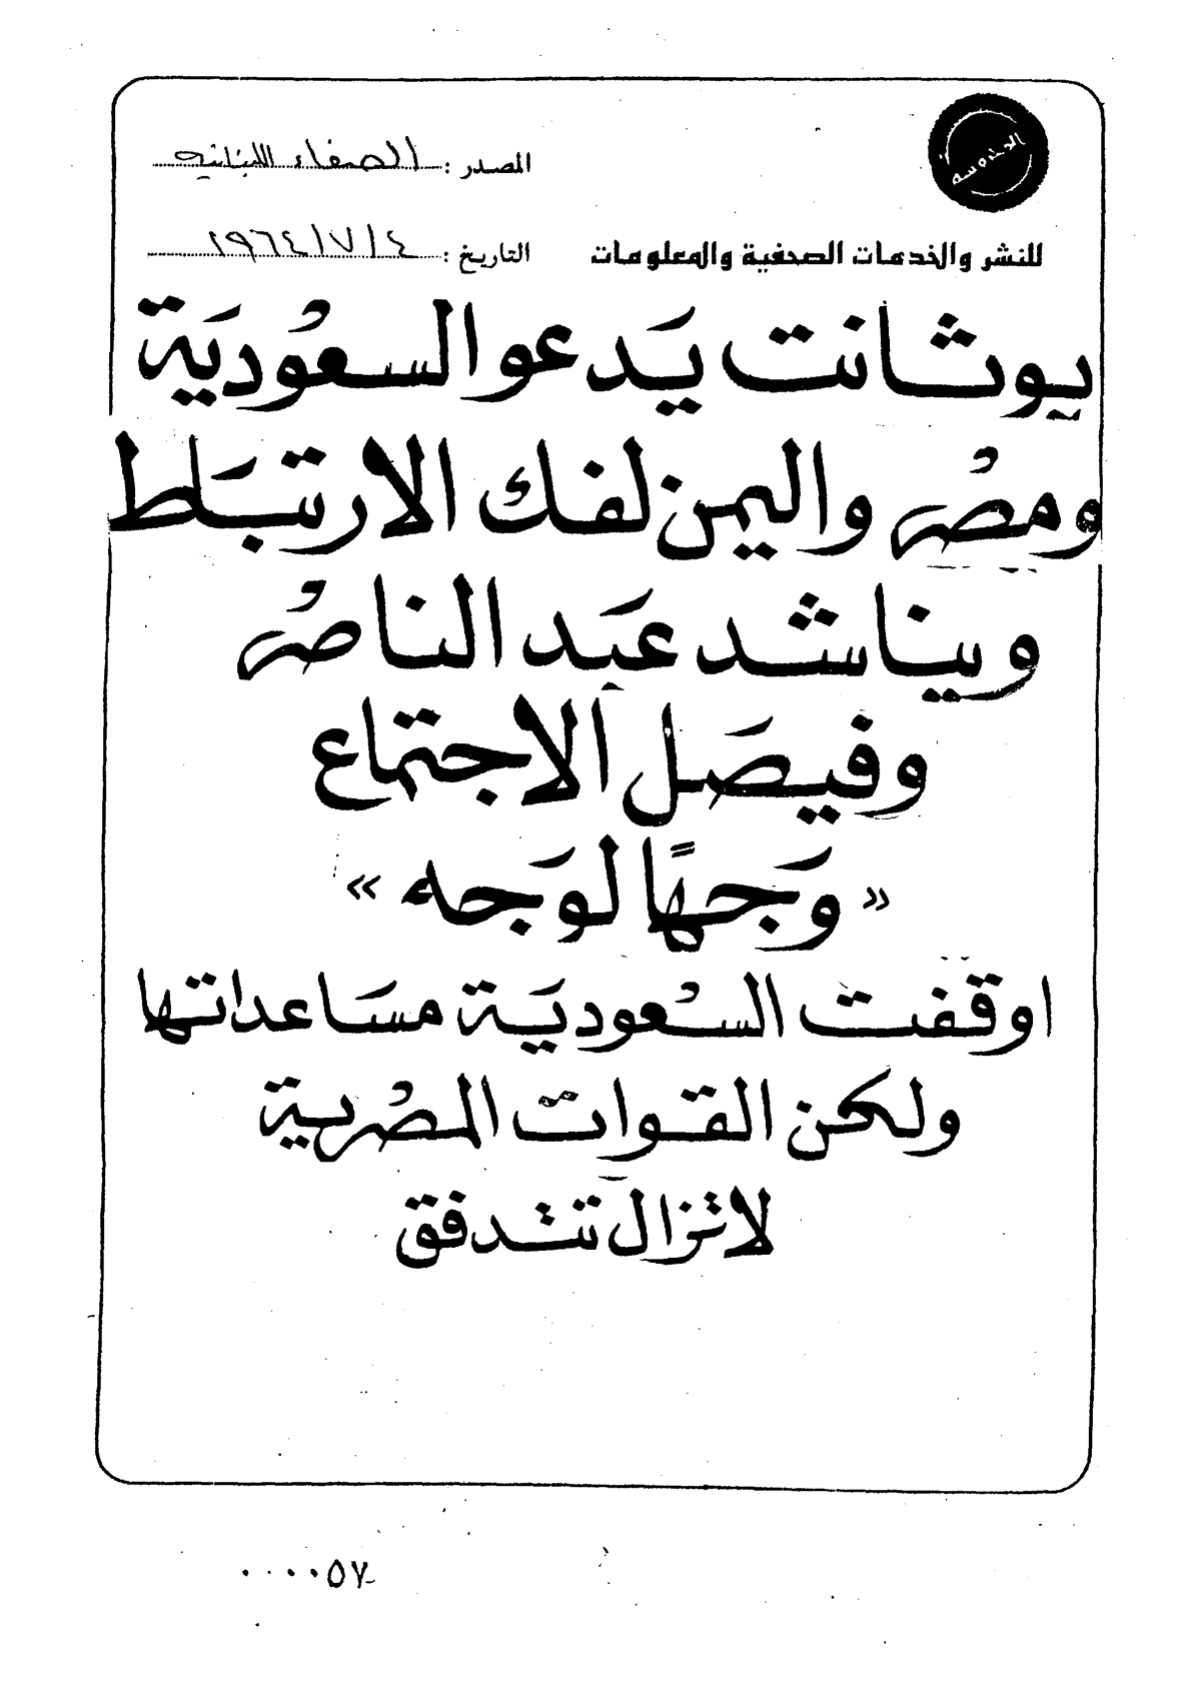 المصدر : الصفاء اللبنانيه
للنشر والخدمات الصحفية والمعلومات
التاريخ : ٤/٧/١٩٦٤
يوثانت يَدعو السعُوديَة
ومصْر واليمن لفك الارتبَاط
ويناشد عبَد الناصْر
وفيصَل الاجتماع
« وَجهًا لوَجه »
اوقفت السعْوديَة مسَاعداتها
ولكن القوات المصْرية
لاتزال تتدفق
٠٠٠٠٥٧